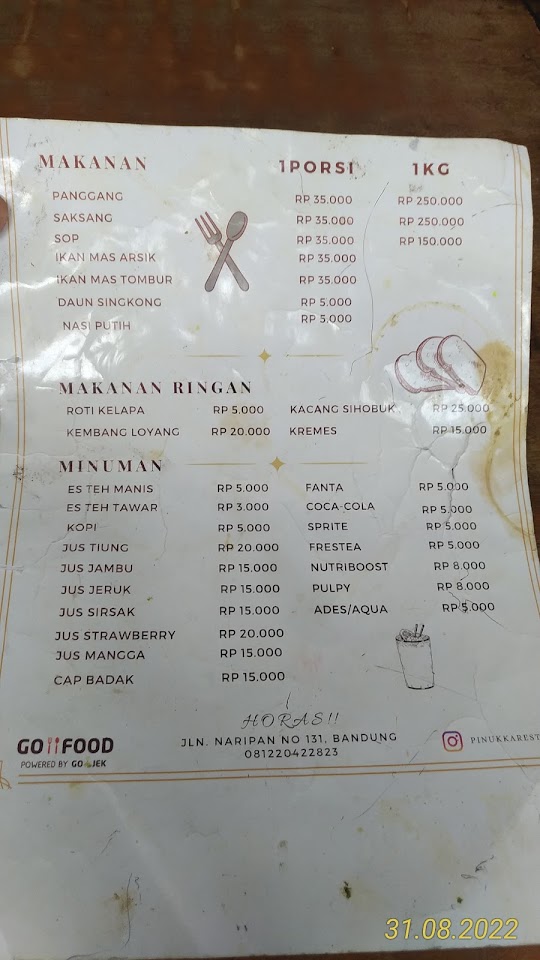 MAKANAN 1PORSI 1KG
PANGGANG RP 35.000 RP 250.000
SAKSANG RP 35.000 RP 250.000
SOP RP 35.000 RP 150.000
IKAN MAS ARSIK RP 35.000
IKAN MAS TOMBUR RP 35.000
DAUN SINGKONG RP 5.000
NASI PUTIH RP 5.000
MAKANAN RINGAN
ROTI KELAPA RP 5.000 KACANG SIHOBUK RP 25.000
KEMBANG LOYANG RP 20.000 KREMES RP 15.000
MINUMAN
ES TEH MANIS RP 5.000 FANTA RP 5.000
ES TEH TAWAR RP 3.000 COCA-COLA RP 5.000
KOPI RP 5.000 SPRITE RP 5.000
JUS TIUNG RP 20.000 FRESTEA RP 5.000
JUS JAMBU RP 15.000 NUTRIBOOST RP 8.000
JUS JERUK RP 15.000 PULPY RP 8.000
JUS SIRSAK RP 15.000 ADES/AQUA RP 5.000
JUS STRAWBERRY RP 20.000
JUS MANGGA RP 15.000
CAP BADAK RP 15.000
HORAS!!
GO FOOD JLN. NARIPAN NO 131, BANDUNG PINUKKAREST
POWERED BY GO JEK 081220422823
31.08.2022